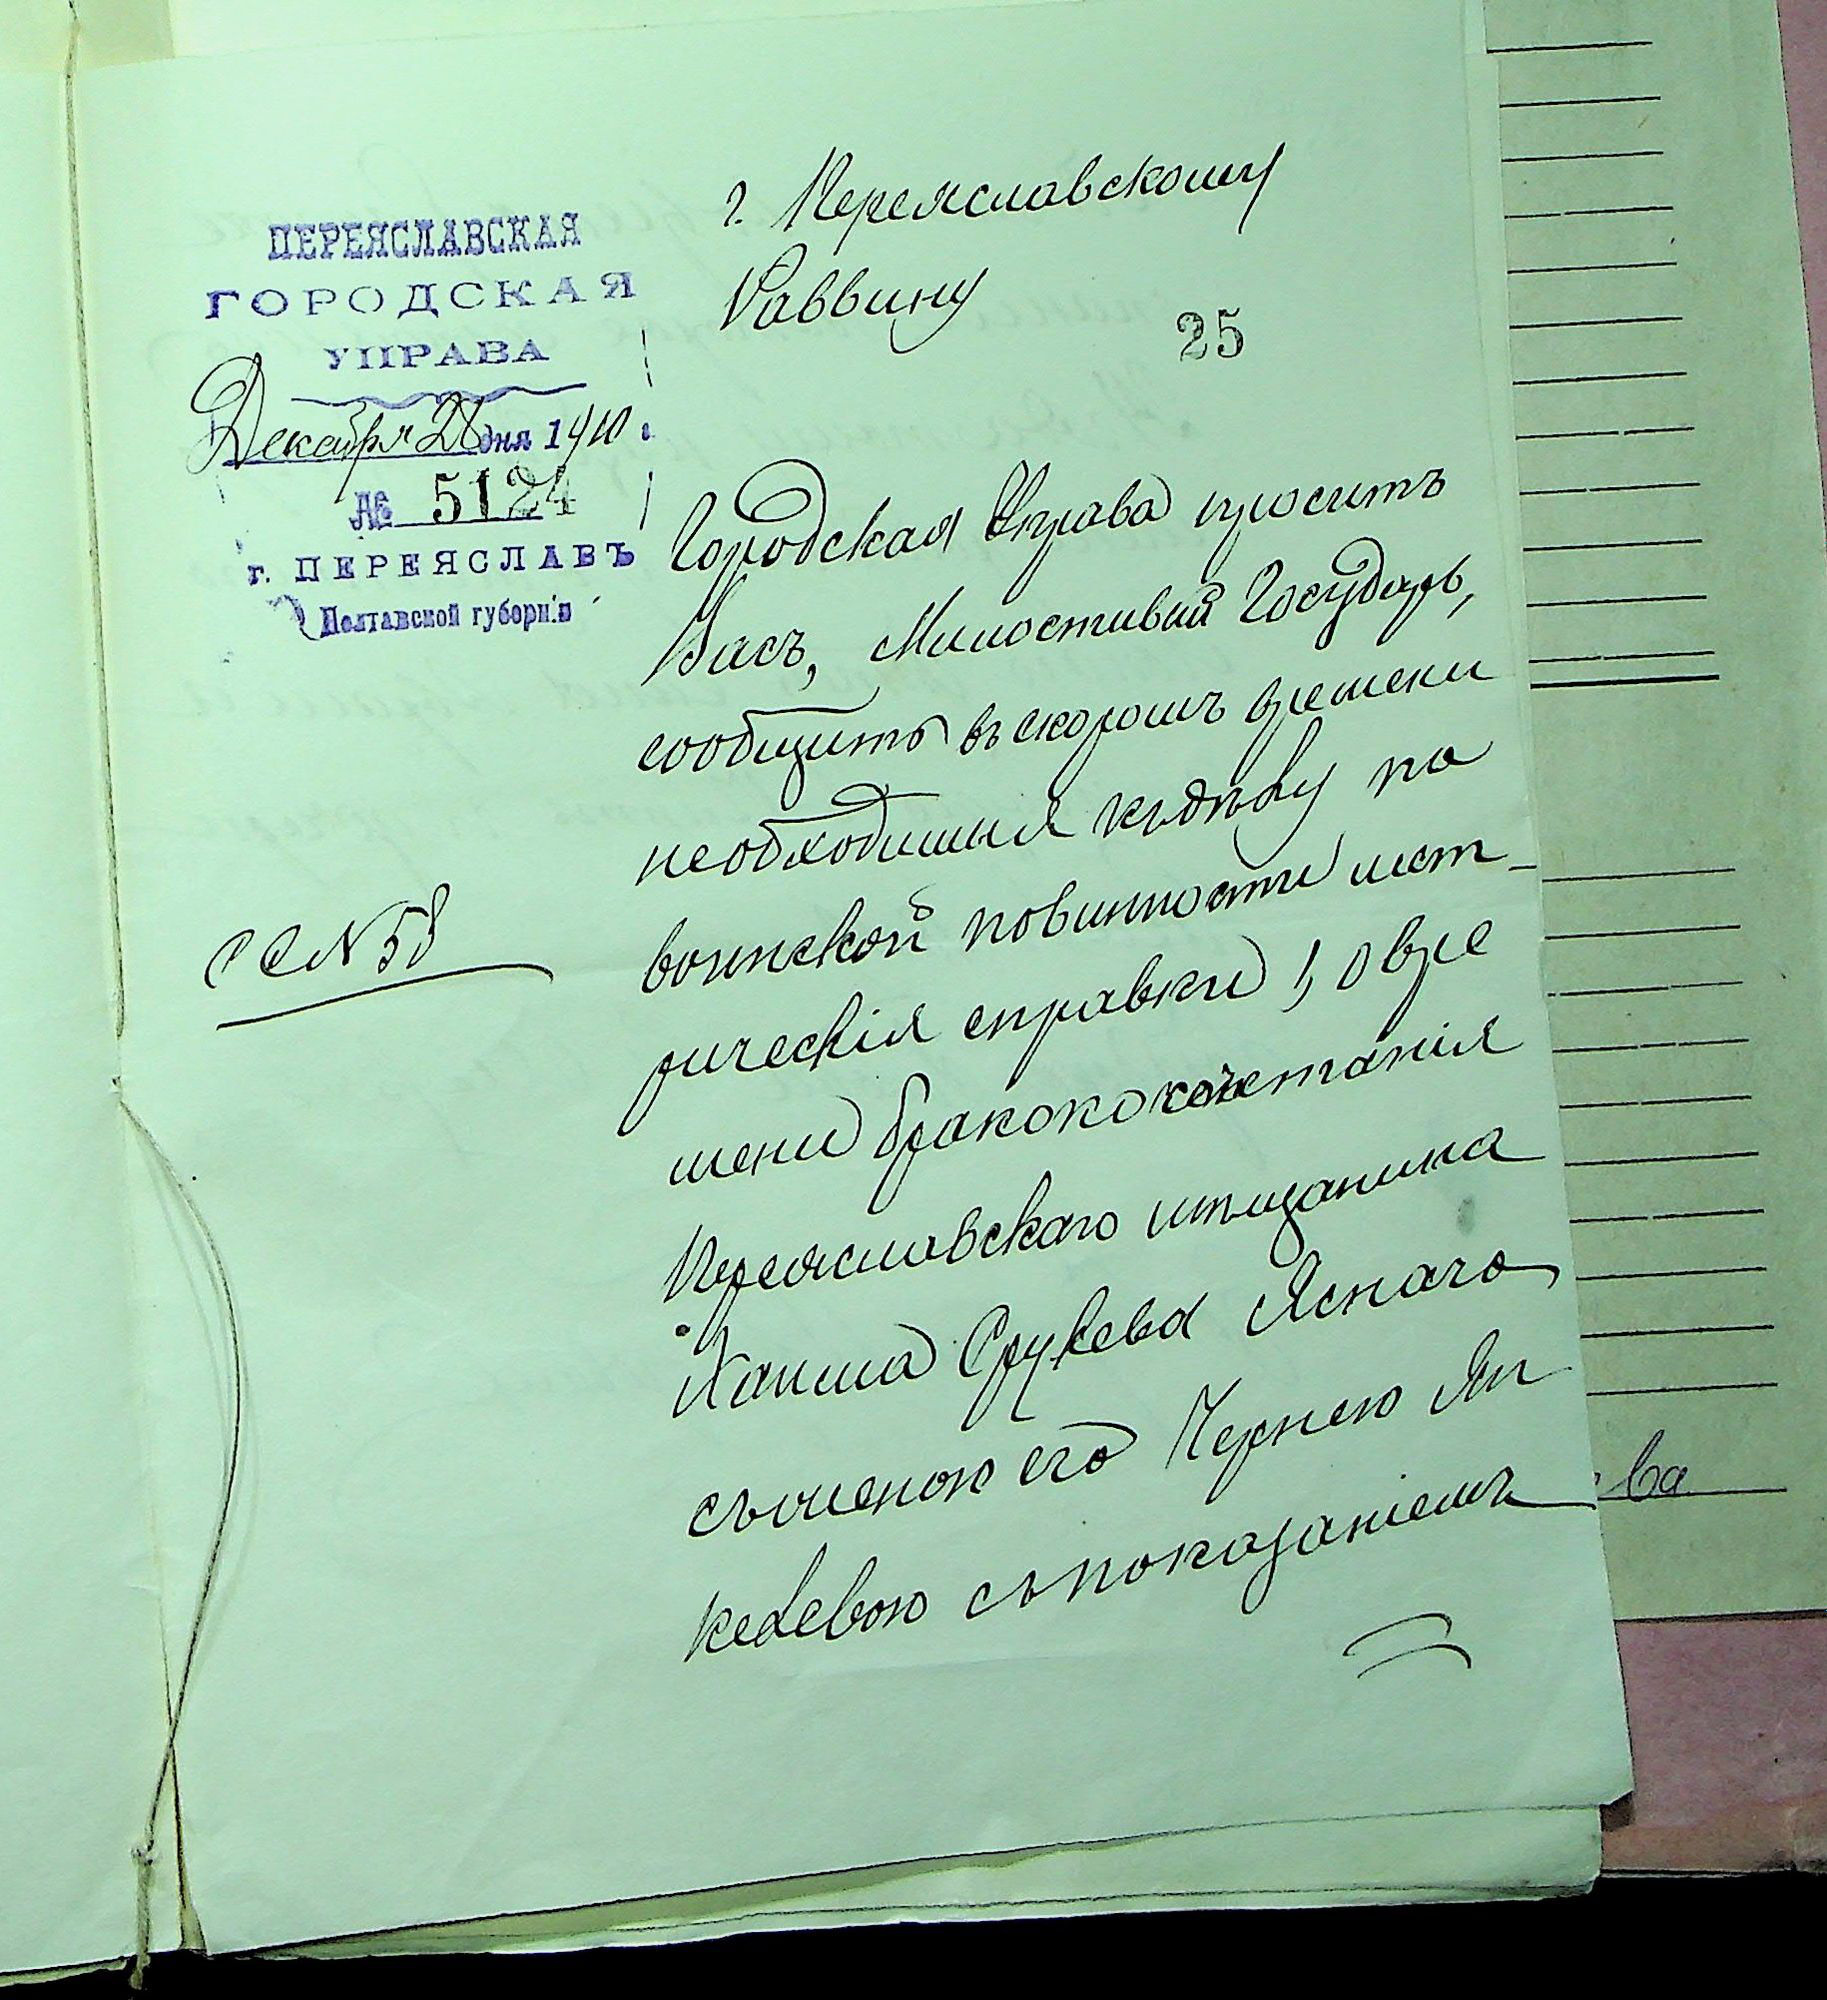 ПЕРЕЯСЛАВСКАЯ
ГОРОДСКАЯ
УПРАВА
Декабря 28 дня 1910
№ 5124
г. ПЕРЕЯСЛАВЪ
Полтавской губерніи
г. Переяславскому
Раввину
25
Городская Управа проситъ
Васъ, Милостивый Государь,
сообщить въ скоромъ времени
необходимыя къ дѣлу по
воинской повинности мет-
рическія справки 1, о вре
мени бракосочетанія
Переяславскаго мѣщанина
Хаима Срулева Яснаго
съ женою его Чернею Ян
келевою съ показаніемъ
№ 58
ва